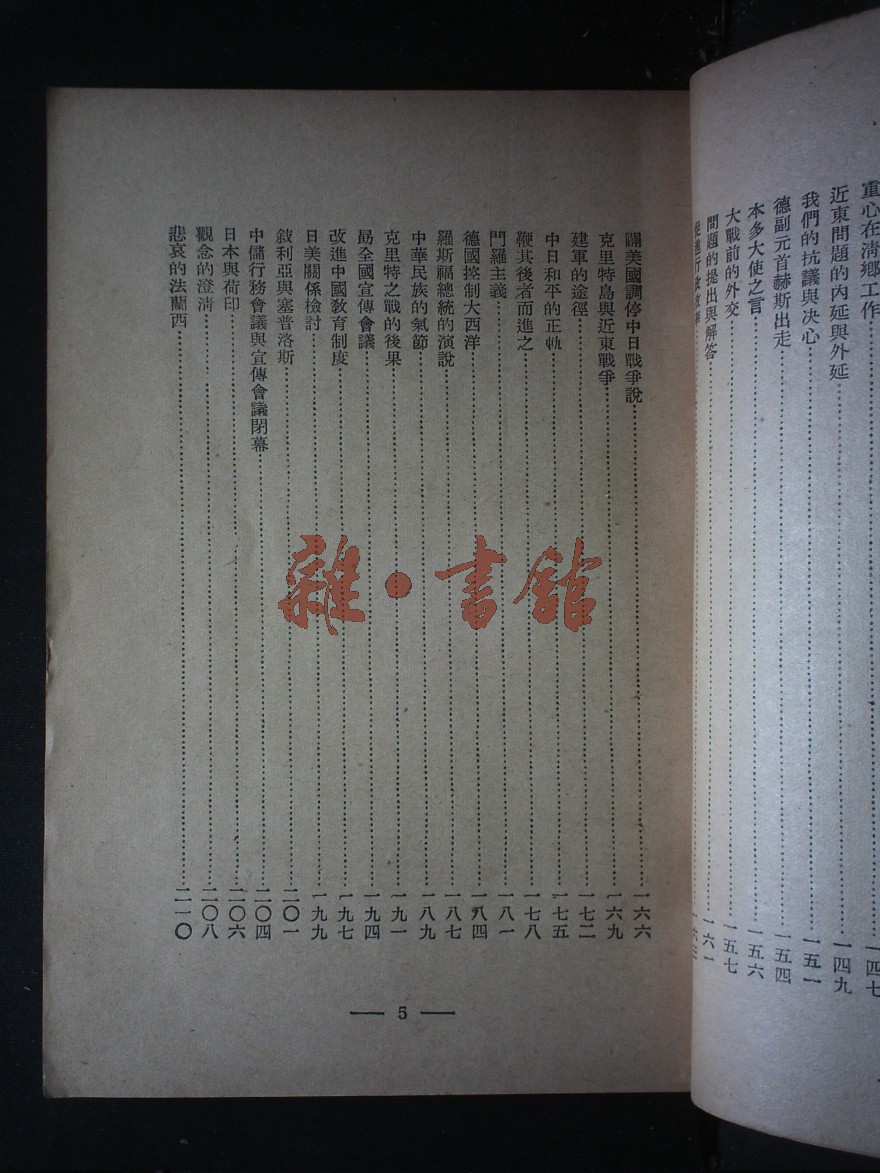 重心在清鄉工作……一四七
近東問題的內延與外延……一四九
我們的抗議與决心……一五一
德副元首赫斯出走……一五四
本多大使之言……一五六
大戰前的外交……一五七
問題的提出與解答……一六一
闢美國調停中日戰爭說……一六六
克里特島與近東戰爭……一六九
建軍的途徑……一七二
中日和平的正軌……一七五
鞭其後者而進之……一七八
門羅主義……一八一
德國控制大西洋……一八四
羅斯福總統的演說……一八七
中華民族的氣節……一八九
克里特之戰的後果……一九一
勗全國宣傳會議……一九四
改進中國教育制度……一九七
日美關係檢討……一九九
敍利亞與塞普洛斯……二〇一
中儲行務會議與宣傳會議閉幕……二〇四
日本與荷印……二〇六
觀念的澄清……二〇八
悲哀的法蘭西……二一〇
— 5 —
雜・書館